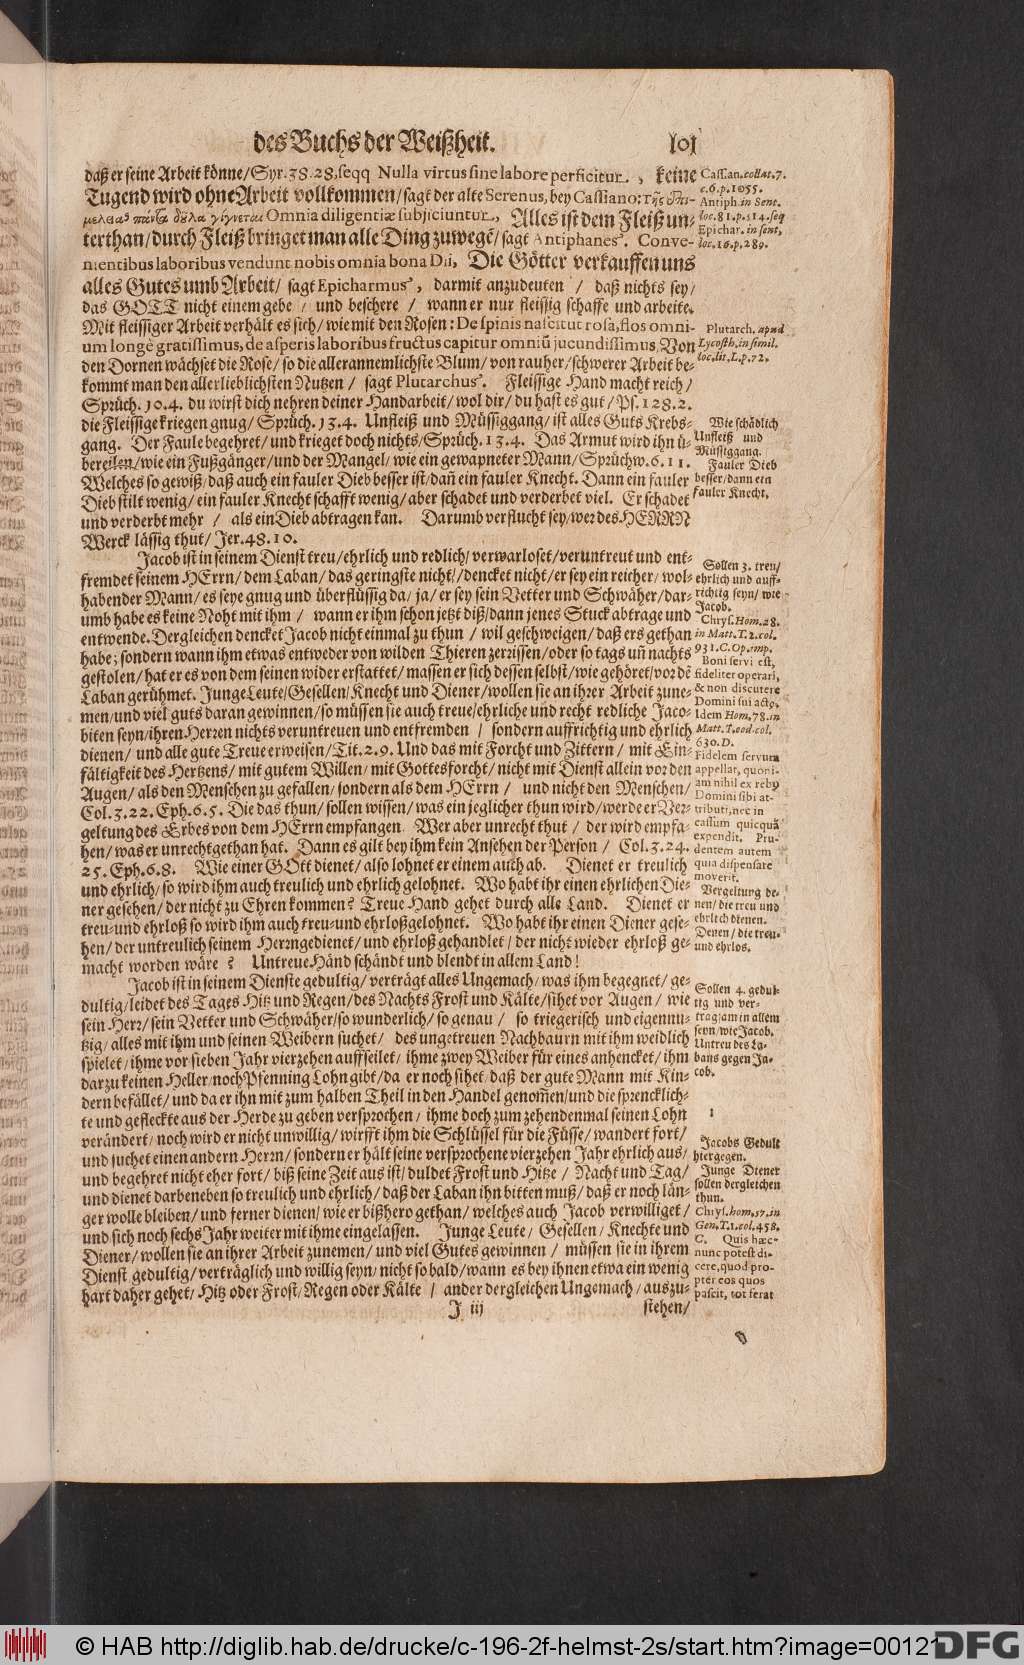 des Buchs der Weißheit. 101
daß er seine Arbeit könne/Syr.38.28.seqq Nulla virtus sine labore perficitur, keine
Tugend wird ohne Arbeit vollkommen/sagt der alte Serenus, bey Cassiano: τῆς ἐπι-
μελείας πάντα δοῦλα γίγνεται Omnia diligentiæ subjiciuntur, Alles ist dem Fleiß un-
terthan/durch Fleiß bringet man alle Ding zuwegẽ/sagt Antiphanes. Conve-
nientibus laboribus vendunt nobis omnia bona Dii, Die Götter verkauffen uns
alles Gutes umb Arbeit/ sagt Epicharmus, darmit anzudeuten / daß nichts sey/
das GOTT nicht einem gebe / und beschere / wann er nur fleissig schaffe und arbeite.
Mit fleissiger Arbeit verhält es sich/wie mit den Rosen: De spinis nascitur rosa, flos omni-
um longè gratissimus, de asperis laboribus fructus capitur omniũ jucundissimus, Von
den Dornen wächset die Rose/so die allerannemlichste Blum/von rauher/schwerer Arbeit be-
kommt man den allerlieblichsten Nutzen / sagt Plutarchus. Fleissige Hand macht reich/
Sprüch. 10.4. du wirst dich nehren deiner Handarbeit/wol dir/du hast es gut/Ps.128.2.
die Fleissige kriegen gnug/Sprüch.13.4. Unfleiß und Müssiggang/ist alles Guts Krebs-
gang. Der Faule begehret/und krieget doch nichts/Sprüch.13.4. Das Armut wird ihn ü-
bereilen/wie ein Fußgänger/und der Mangel/wie ein gewapneter Mann/Sprüchw.6.11.
Welches so gewiß/daß auch ein fauler Dieb besser ist/dañ ein fauler Knecht. Dann ein fauler
Dieb stilt wenig/ein fauler Knecht schafft wenig/aber schadet und verderbet viel. Er schadet
und verderbt mehr / als ein Dieb abtragen kan. Darumb verflucht sey/wer des HERRN
Werck lässig thut/Jer.48.10.
Jacob ist in seinem Dienst treu/ehrlich und redlich/verwarloset/veruntreut und ent-
fremdet seinem HErrn/dem Laban/das geringste nicht!/dencket nicht/er sey ein reicher/wol-
habender Mann/es seye gnug und überflüssig da/ja/er sey sein Vetter und Schwäher/dar-
umb habe es keine Noht mit ihm / wann er ihm schon jetzt diß/dann jenes Stuck abtrage und
entwende. Dergleichen dencket Jacob nicht einmal zu thun / wil geschweigen/daß ers gethan
habe; sondern wann ihm etwas entweder von wilden Thieren zerrissen/oder so tags uñ nachts
gestolen/hat er es von dem seinen wider erstattet/massen er sich dessen selbst/wie gehöret/vor dẽ
Laban gerühmet. Junge Leute/Gesellen/Knecht und Diener/wollen sie an ihrer Arbeit zune-
men/und viel guts daran gewinnen/so müssen sie auch treue/ehrliche und recht redliche Jaco-
biten seyn/ihren Herren nichts veruntreuen und entfremden / sondern auffrichtig und ehrlich
dienen/ und alle gute Treue erweisen/Tit.2.9. Und das mit Forcht und Zittern/ mit Ein-
fältigkeit des Hertzens/mit gutem Willen/mit Gottesforcht/nicht mit Dienst allein vor den
Augen/als den Menschen zu gefallen/sondern als dem HErrn / und nicht den Menschen/
Col.3.22. Eph.6.5. Die das thun/sollen wissen/was ein jeglicher thun wird/werde er Ver-
geltung des Erbes von dem HErrn empfangen. Wer aber unrecht thut / der wird empfa-
hen/was er unrecht gethan hat. Dann es gilt bey ihm kein Ansehen der Person / Col.3.24.
25. Eph.6.8. Wie einer GOtt dienet/also lohnet er einem auch ab. Dienet er treulich
und ehrlich/so wird ihm auch treulich und ehrlich gelohnet. Wo habt ihr einen ehrlichen Die-
ner gesehen/der nicht zu Ehren kommen? Treue Hand gehet durch alle Land. Dienet er
treu-und ehrloß so wird ihm auch treu-und ehrloß gelohnet. Wo habt ihr einen Diener gese-
hen/der untreulich seinem Herrn gedienet/und ehrloß gehandlet/der nicht wieder ehrloß ge-
macht worden wäre? Untreue Händ schändt und blendt in allem Land!
Jacob ist in seinem Dienste gedultig/verträgt alles Ungemach/was ihm begegnet/ge-
dultig/leidet des Tages Hitz und Regen/des Nachts Frost und Kälte/sihet vor Augen/ wie
sein Herr/sein Vetter und Schwäher/so wunderlich/so genau / so triegerisch und eigennu-
tzig/alles mit ihm und seinen Weibern suchet/ des ungetreuen Nachbaurn mit ihm weidlich
spielet/ihme vor sieben Jahr vierzehen auffseilet/ihme zwey Weiber für eines anhencket/ihm
darzu keinen Heller/noch Pfenning Lohn gibt/da er noch sihet/daß der gute Mann mit Kin-
dern befället/und da er ihn mit zum halben Theil in den Handel genom̃en/und die sprencklich-
te und gefleckte aus der Herde zu geben versprochen/ihme doch zum zehendenmal seinen Lohn
verändert/noch wird er nicht unwillig/wirfft ihm die Schlüssel für die Füsse/wandert fort/
und suchet einen andern Herrn/sondern er hält seine versprochene vierzehen Jahr ehrlich aus/
und begehret nicht eher fort/biß seine Zeit aus ist/duldet Frost und Hitze/ Nacht und Tag/
und dienet darbeneben so treulich und ehrlich/daß der Laban ihn bitten muß/daß er noch län-
ger wolle bleiben/und ferner dienen/wie er bißhero gethan/welches auch Jacob verwilliget/
und sich noch sechs Jahr weiter mit ihme eingelassen. Junge Leute/ Gesellen/ Knechte und
Diener/wollen sie an ihrer Arbeit zunemen/und viel Gutes gewinnen/ müssen sie in ihrem
Dienst gedultig/verträglich und willig seyn/nicht so bald/wann es bey ihnen etwa ein wenig
hart daher gehet/Hitz oder Frost/Regen oder Kälte / ander dergleichen Ungemach/auszu-
J iij stehen/
Cassian. collat. 7.
c. 6. p. 1055.
Antiph. in Sent.
loc. 81. p. 514. seq
Epichar. in sent,
loc. 16. p. 289.
Plutarch. apud
Lycosth. in simil.
loc. lit. L. p. 72.
Wie schädlich
Unfleiß und
Müssiggang.
Fauler Dieb
besser/dann ein
fauler Knecht.
Sollen 3. treu/
ehrlich und auff-
richtig seyn/wie
Jacob.
Chrys. Hom. 28.
in Matt. T. 2. col.
931. C. Op. imp.
Boni servi est,
fideliter operari,
& non discutere
Domini sui acto.
Idem Hom. 78. in
Matt. T. eod. col.
630. D.
Fidelem servum
appellat, quoni-
am nihil ex rebꝰ
Domini sibi at-
tribuit, nec in
cassum quicquã
expendit. Pru-
dentem autem
quia dispensare
moverit.
Vergeltung de-
nen/die treu und
ehrlich dienen.
Denen/die treu-
und ehrlos.
Sollen 4. gedul-
tig und ver-
tragsam in allem
seyn/wie Jacob.
Untreu des La-
bans gegen Ja-
cob.
1
Jacobs Gedult
hiergegen.
Junge Diener
sollen dergleichen
thun.
Chrys. hom. 57. in
Gen. T. 1. col. 458.
C. Quis hæc-
nunc potest di-
cere, quod pro-
pter eos quos
pascit, tot ferat
© HAB http://diglib.hab.de/drucke/c-196-2f-helmst-2s/start.htm?image=00121
DFG